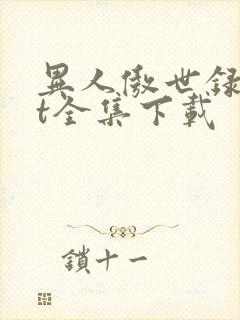 異人傲世録
t全集下載
鎖十一